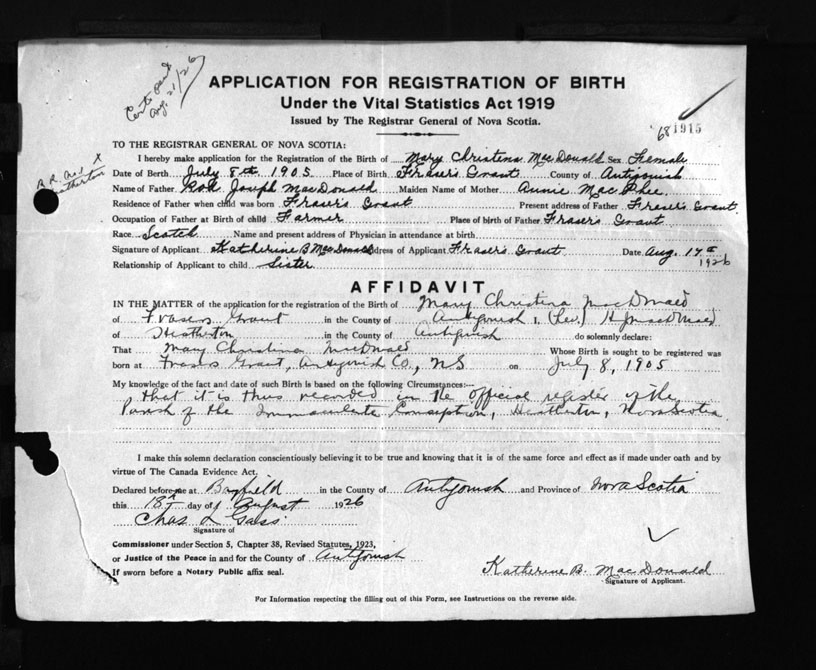 Cert sent
Aug. 21/26
APPLICATION FOR REGISTRATION OF BIRTH
Under the Vital Statistics Act 1919
Issued by The Registrar General of Nova Scotia.
68 1915
R.R. No. 1
Heatherton
TO THE REGISTRAR GENERAL OF NOVA SCOTIA:
I hereby make application for the Registration of the Birth of Mary Christena MacDonald Sex Female
Date of Birth July 8th 1905 Place of Birth Fraser's Grant County of Antigonish
Name of Father Rod Joseph MacDonald Maiden Name of Mother Annie MacPhee
Residence of Father when child was born Fraser's Grant Present address of Father Fraser's Grant.
Occupation of Father at Birth of child Farmer Place of birth of Father Fraser's Grant
Race Scotch Name and present address of Physician in attendance at birth
Signature of Applicant Katherine B MacDonald Address of Applicant Fraser's Grant Date Aug. 17th 1926
Relationship of Applicant to child Sister
AFFIDAVIT
IN THE MATTER of the application for the registration of the Birth of Mary Christina MacDonald
of Frasers Grant in the County of Antigonish, (Rev.) H J MacDonald
of Heatherton in the County of Antigonish do solemnly declare:
That Mary Christina MacDonald Whose Birth is sought to be registered was
born at Frasers Grant, Antigonish Co., NS on July 8, 1905
My knowledge of the fact and date of such Birth is based on the following Circumstances:—
that it is thus recorded in the official register of the
Parish of the Immaculate Conception, Heatherton, Nova Scotia.
I make this solemn declaration conscientiously believing it to be true and knowing that it is of the same force and effect as if made under oath and by
virtue of The Canada Evidence Act.
Declared before me at Bayfield in the County of Antigonish and Province of Nova Scotia
this 18th day of August 1926
Chas L Gass
Signature of
Commissioner under Section 5, Chapter 38, Revised Statutes, 1923,
or Justice of the Peace in and for the County of Antigonish
If sworn before a Notary Public affix seal.
Katherine B. MacDonald
Signature of Applicant.
For Information respecting the filling out of this Form, see Instructions on the reverse side.